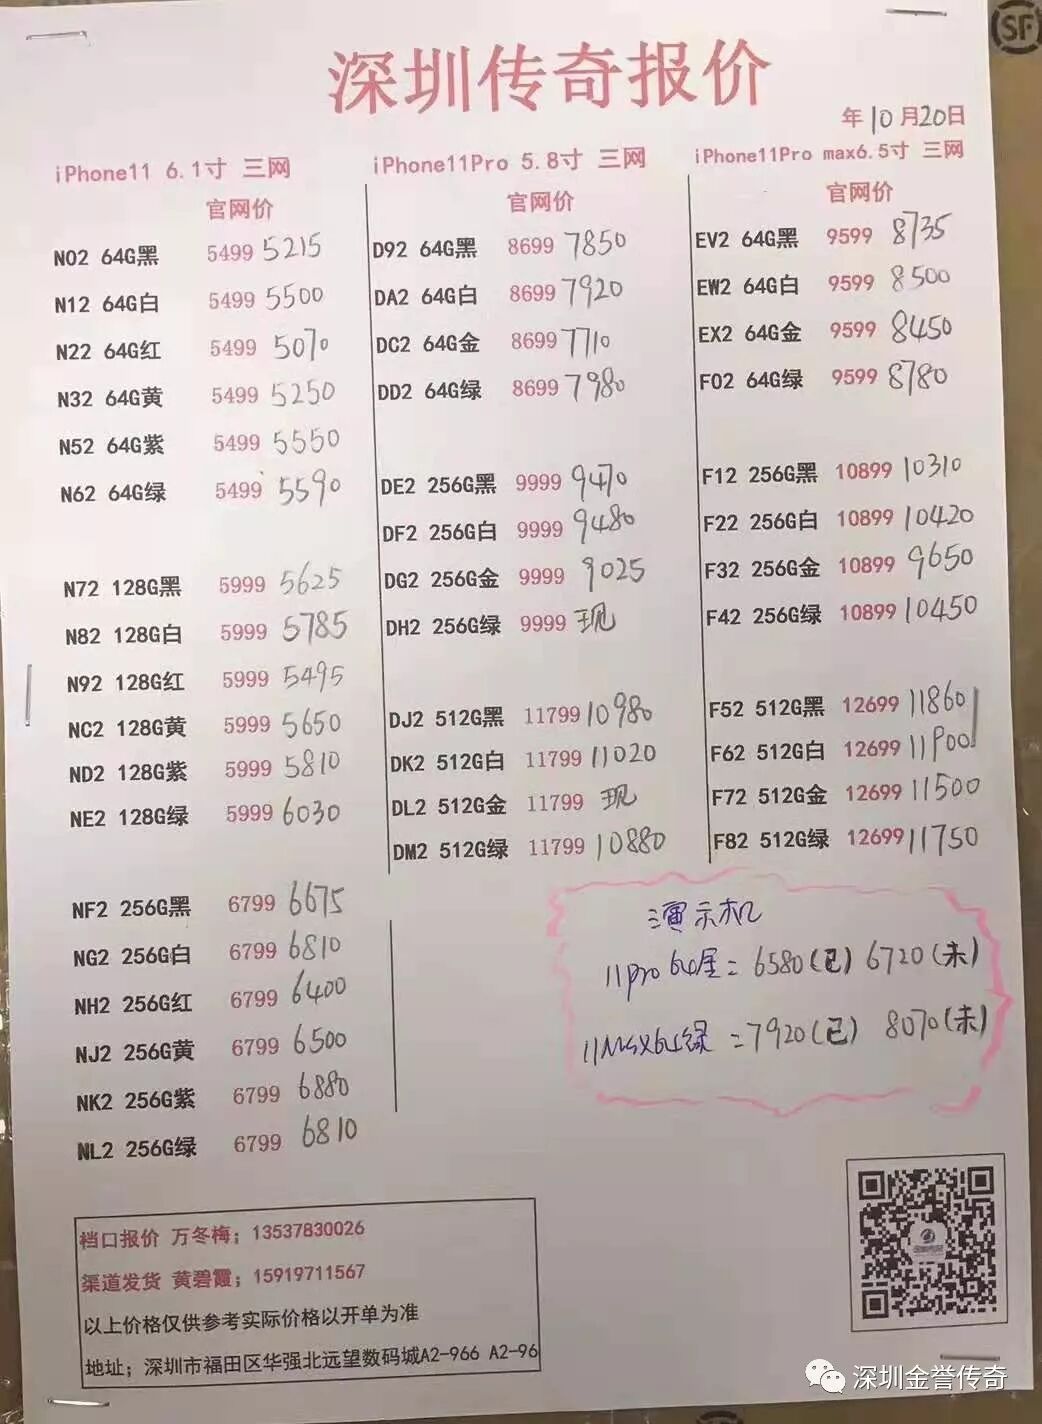 SF
深圳传奇报价
年10月20日
iPhone11 6.1寸 三网
官网价
N02 64G黑 5499 5215
N12 64G白 5499 5500
N22 64G红 5499 5070
N32 64G黄 5499 5250
N52 64G紫 5499 5550
N62 64G绿 5499 5590
N72 128G黑 5999 5625
N82 128G白 5999 5785
N92 128G红 5999 5495
NC2 128G黄 5999 5650
ND2 128G紫 5999 5810
NE2 128G绿 5999 6030
NF2 256G黑 6799 6675
NG2 256G白 6799 6810
NH2 256G红 6799 6400
NJ2 256G黄 6799 6500
NK2 256G紫 6799 6880
NL2 256G绿 6799 6810
iPhone11Pro 5.8寸 三网
官网价
D92 64G黑 8699 7850
DA2 64G白 8699 7920
DC2 64G金 8699 7710
DD2 64G绿 8699 7980
DE2 256G黑 9999 9470
DF2 256G白 9999 9480
DG2 256G金 9999 9025
DH2 256G绿 9999 现
DJ2 512G黑 11799 10980
DK2 512G白 11799 11020
DL2 512G金 11799 现
DM2 512G绿 11799 10880
iPhone11Pro max6.5寸 三网
官网价
EV2 64G黑 9599 8735
EW2 64G白 9599 8500
EX2 64G金 9599 8450
F02 64G绿 9599 8780
F12 256G黑 10899 10310
F22 256G白 10899 10420
F32 256G金 10899 9650
F42 256G绿 10899 10450
F52 512G黑 12699 11860
F62 512G白 12699 11900
F72 512G金 12699 11500
F82 512G绿 12699 11750
演示机
11pro 64金 = 6580(已) 6720(未)
11Max64绿 = 7920(已) 8070(未)
档口报价 万冬梅；13537830026
渠道发货 黄碧霞；15919711567
以上价格仅供参考实际价格以开单为准
地址；深圳市福田区华强北远望数码城A2-966 A2-96
深圳金誉传奇